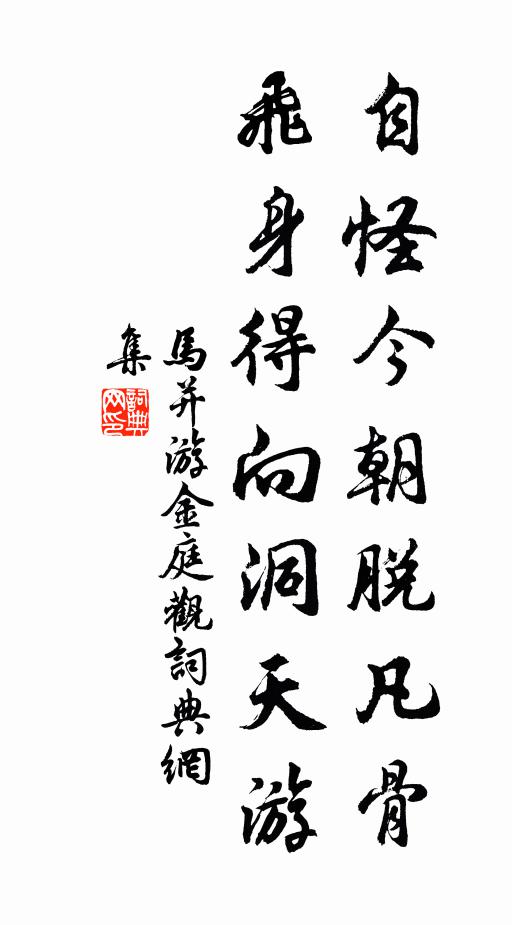 自怪今朝脱凡骨
飛身得向洞天游
馬并游金庭觀詞典網
集
詞典网印